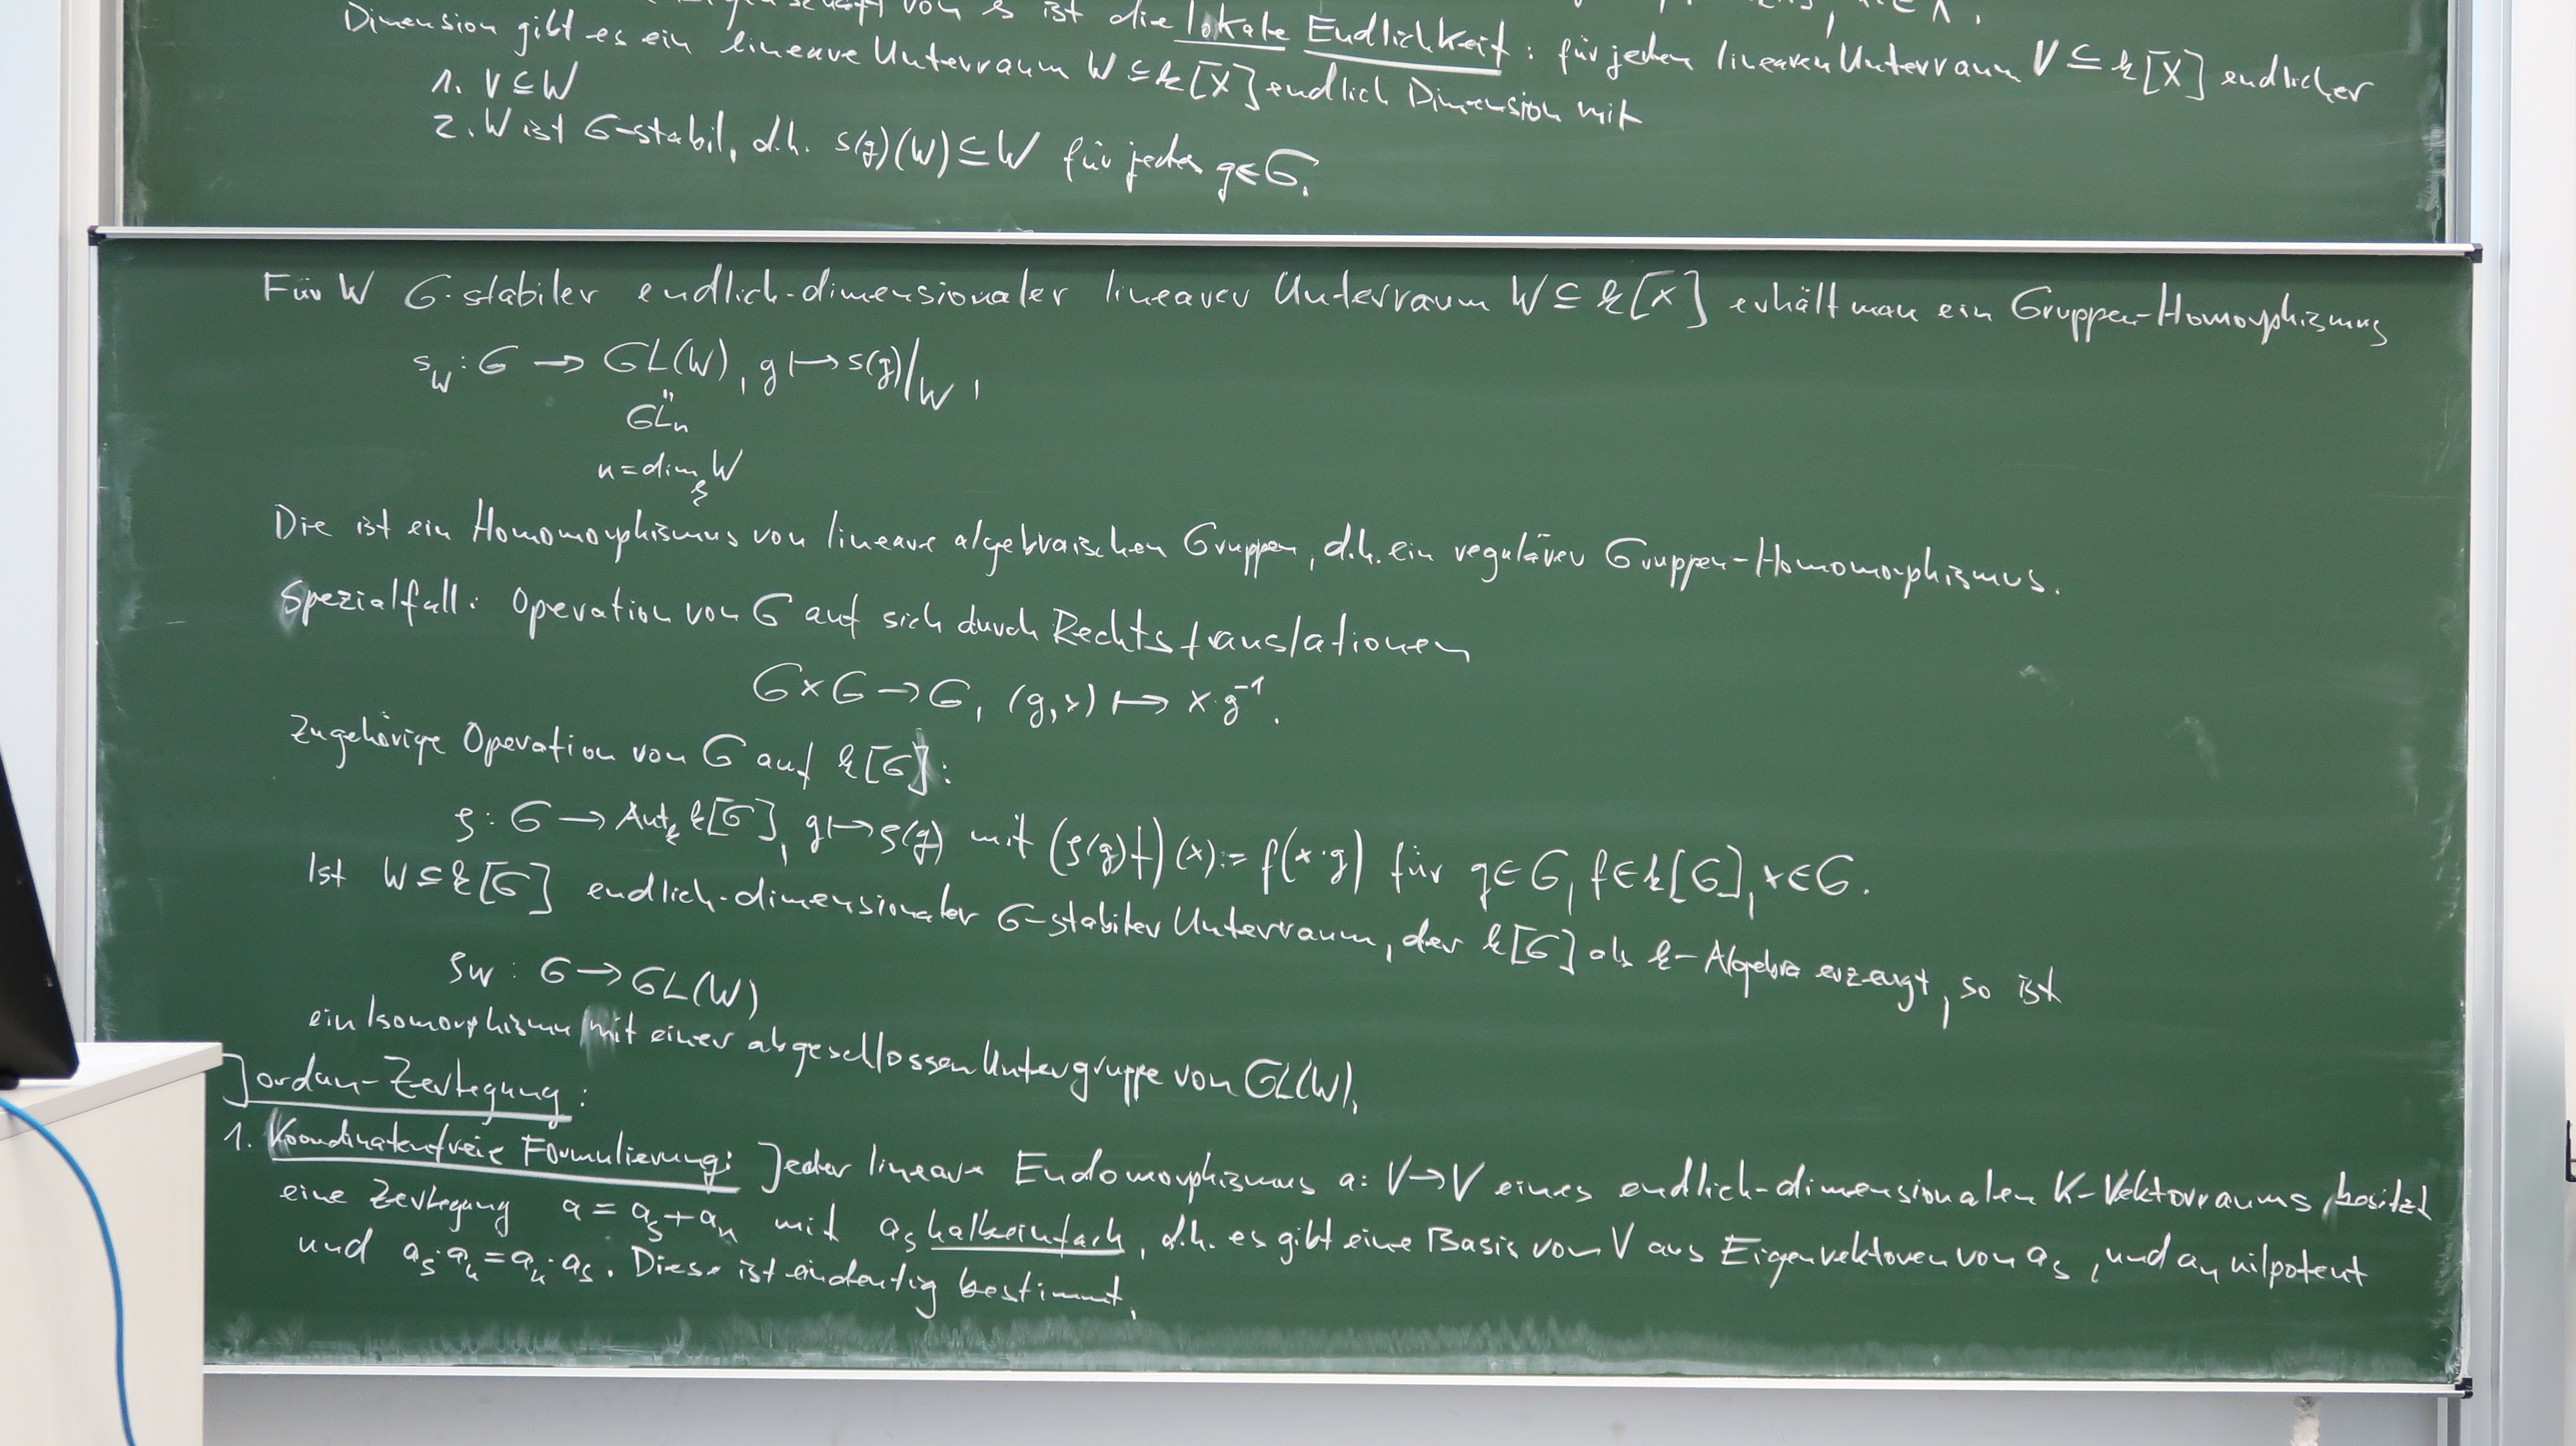 von s ist die lokale Endlichkeit: für jeden linearen Unterraum V ⊆ k[X] endlicher
Dimension gibt es ein lineare Unterraum W ⊆ k[X] endlich Dimension mit
1. V ⊆ W
2. W ist G-stabil, d.h. s(g)(W) ⊆ W für jedes g∈G.
Für W G-stabiler endlich-dimensionaler linearer Unterraum W ⊆ k[X] erhält man ein Gruppen-Homomorphismus
s_W : G → GL(W), g ↦ s(g)|_W,
"
GL_n
n = dim_k W
Die ist ein Homomorphismus von lineare algebraischen Gruppen, d.h. ein regulären Gruppen-Homomorphismus.
Spezialfall: Operation von G auf sich durch Rechtstranslationen
G×G → G, (g,x) ↦ x·g⁻¹.
Zugehörige Operation von G auf k[G]:
ρ : G → Aut_k k[G], g ↦ ρ(g) mit (ρ(g)f)(x) := f(x·g) für g∈G, f∈k[G], x∈G.
Ist W ⊆ k[G] endlich-dimensionaler G-stabiler Unterraum, der k[G] als k-Algebra erzeugt, so ist
ρ_W : G → GL(W)
ein Isomorphismu mit einer abgeschlossen Untergruppe von GL(W).
Jordan-Zerlegung:
1. Koordinatenfreie Formulierung: Jeder lineare Endomorphismus a: V → V eines endlich-dimensionalen K-Vektorraums besitzt
eine Zerlegung a = a_s + a_n mit a_s halbeinfach, d.h. es gibt eine Basis von V aus Eigenvektoren von a_s, und a_n nilpotent
und a_s·a_n = a_n·a_s. Diese ist eindeutig bestimmt.